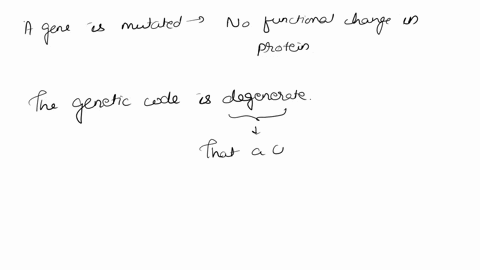 A gene is mutated → No functional change in
protein
The genetic code is degenerate.
That a c